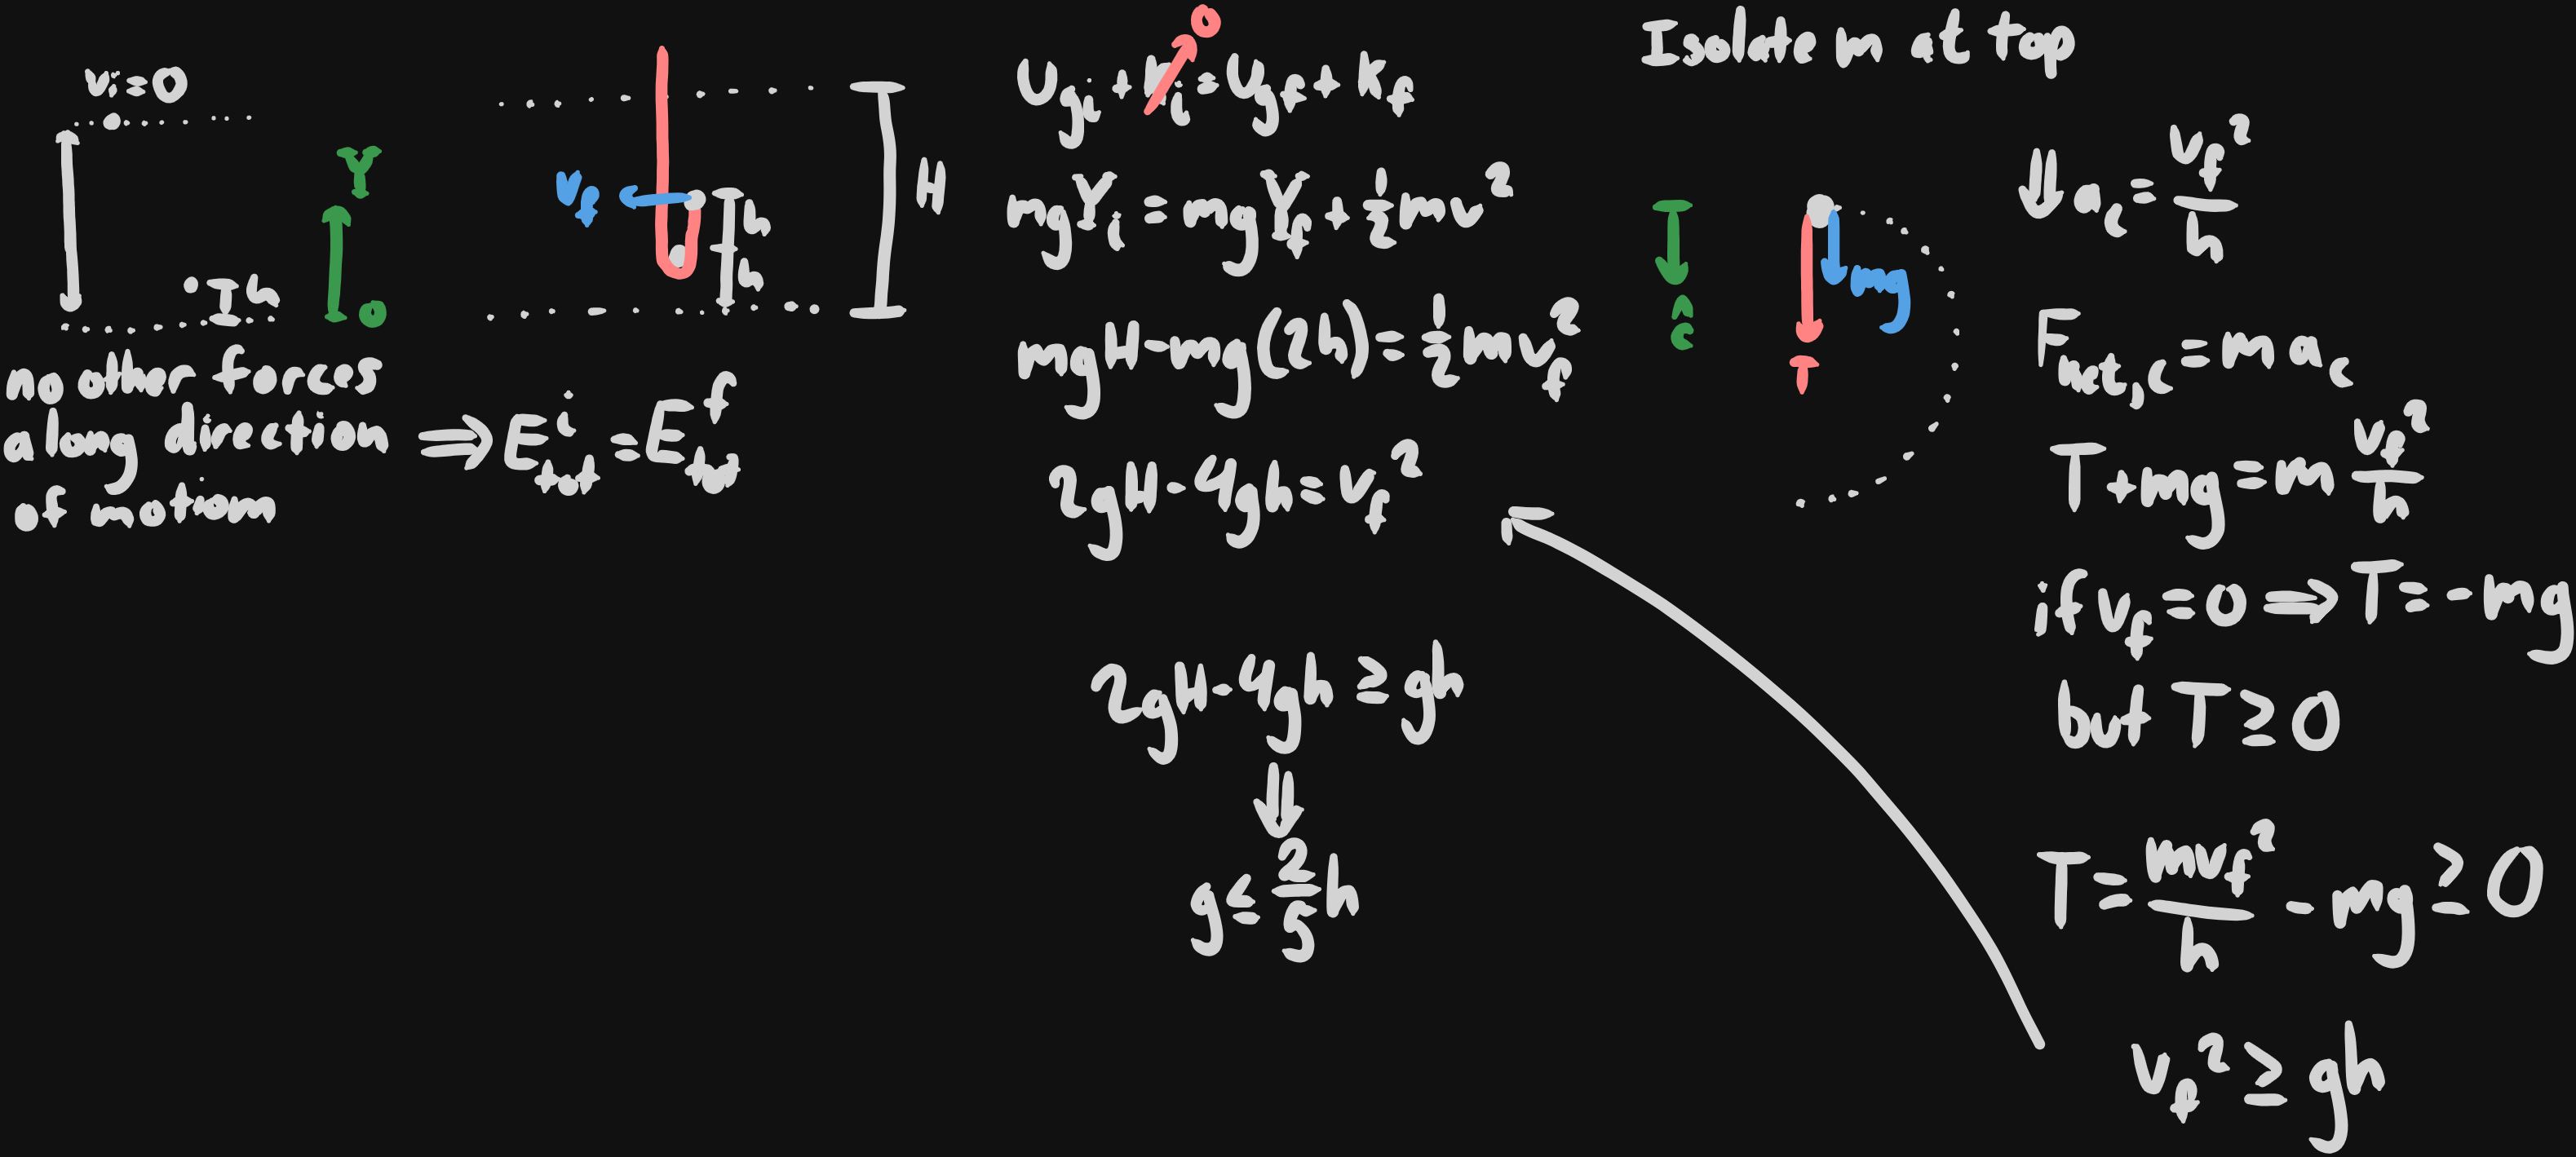 vᵢ=0
h
Y
0
no other forces
along direction
of motiom
⇒ E_tot^i = E_tot^f
v_f
h
h
H
0
U_gi + k_i = U_gf + k_f
mgY_i = mgY_f + ½mv²
mgH-mg(2h) = ½mv_f²
2gH-4gh=v_f²
2gH-4gh ≥ gh
⇓
g ≤ 2/5 h
Isolate m at top
ĉ
mg
T
⇓ a_c = v_f²/h
F_net,c = m a_c
T+mg = m v_f²/h
if v_f = 0 ⇒ T = -mg
but T ≥ 0
T = mv_f²/h - mg ≥ 0
v_f² ≥ gh